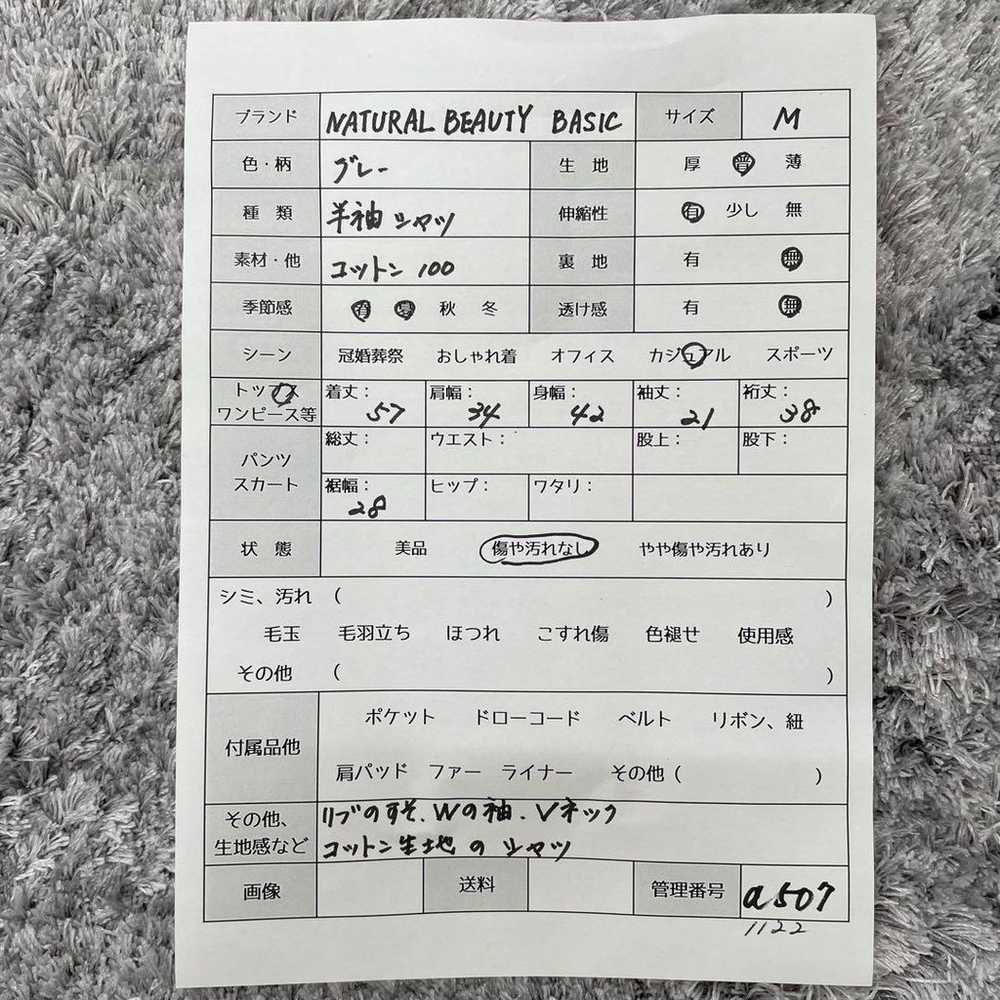 ブランド NATURAL BEAUTY BASIC サイズ M
色・柄 グレー 生地 厚 普 薄
種類 半袖シャツ 伸縮性 有 少し 無
素材・他 コットン 100 裏地 有 無
季節感 春 夏 秋 冬 透け感 有 無
シーン 冠婚葬祭 おしゃれ着 オフィス カジュアル スポーツ
トップス ワンピース等 着丈: 57 肩幅: 34 身幅: 42 袖丈: 21 裄丈: 38
パンツ スカート 総丈: ウエスト: 股上: 股下:
裾幅: 28 ヒップ: ワタリ:
状態 美品 傷や汚れなし やや傷や汚れあり
シミ、汚れ ( )
毛玉 毛羽立ち ほつれ こすれ傷 色褪せ 使用感
その他 ( )
付属品他 ポケット ドローコード ベルト リボン、紐
肩パッド ファー ライナー その他 ( )
その他、 リブのすそ、Wの袖、Vネック
生地感など コットン生地のシャツ
画像 送料 管理番号 a507
1122